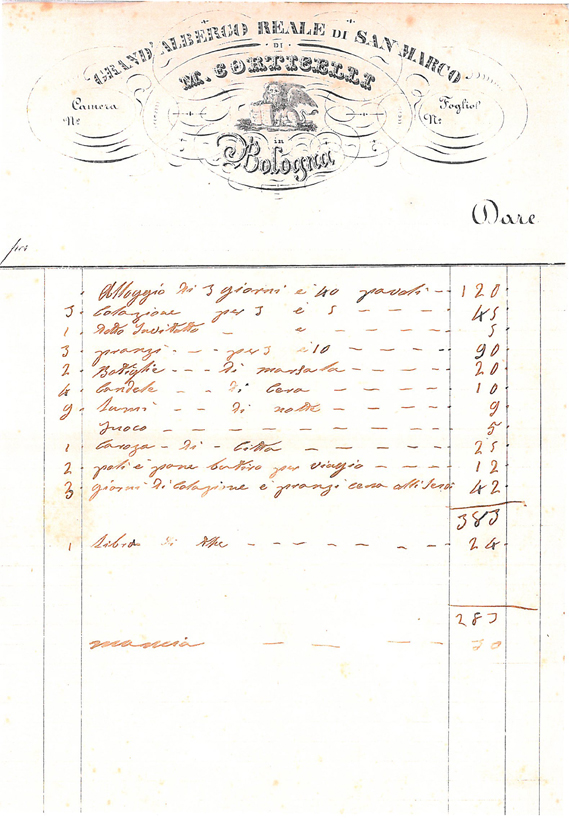 GRAND' ALBERGO REALE DI SAN MARCO
DI
M. CORTICELLI
Camera
Nº
Foglio
Nº
in
Bologna
Dare
per
Alloggio di 3 giorni e 40 pavoli -- 120
3 Colazione per 3 e 5 - - - - 45
1 detto Invitatto - e - - - - 5
3 pranzi - - - per 3 e 10 - - - 90
2 Bottiglie - - - di marsala - - - - 20
4 Candele - - di Cera - - - - 10
9 Lumi - - di notte - - - 9
fuoco - - - - - - - - 5
1 Caroza - di - Citta - - - - - - 25
2 poli e pane buttiro per viaggio - - - - 12
3 giorni di Colazione e pranzi cena alli servi 42
383
1 Libra di The - - - - - - - - 24
283
mancia - - - - 70